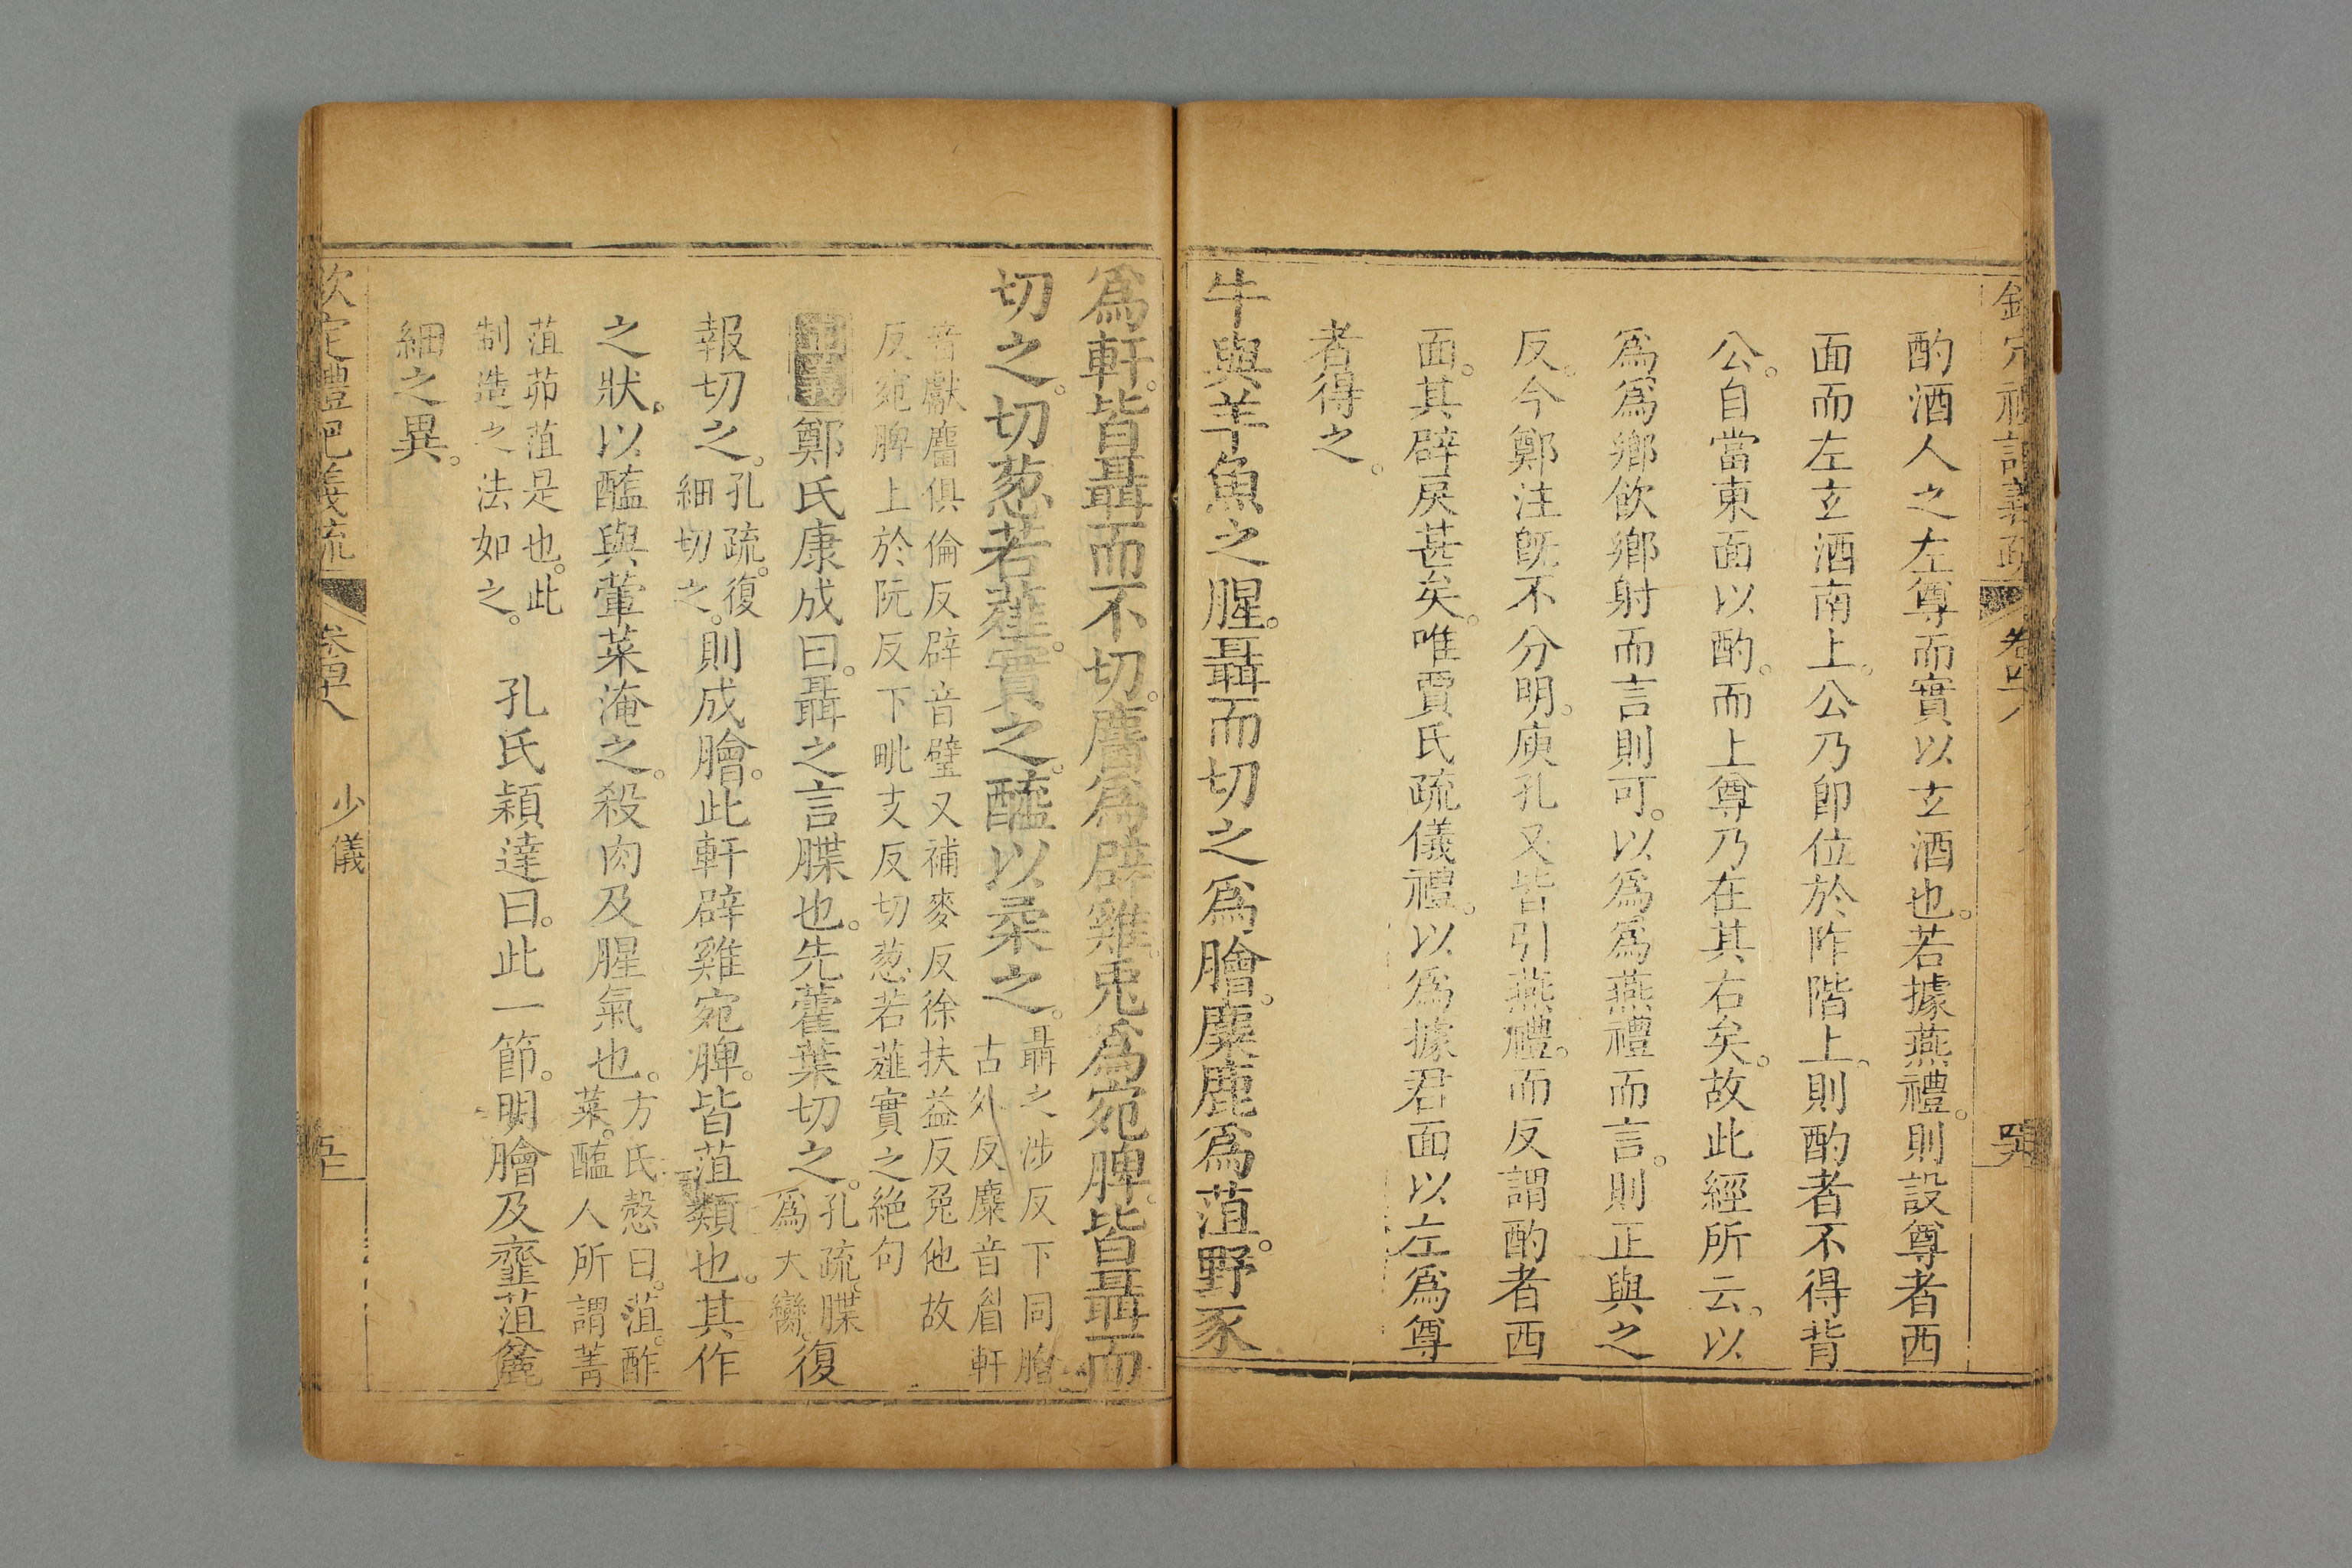 酌酒人之左尊而實以玄酒也。若據燕禮。則設尊者西
面而左玄酒南上。公乃卽位於阼階上。則酌者不得背
公。自當東面以酌。而上尊乃在其右矣。故此經所云。以
爲爲鄉飲鄉射而言則可。以爲爲燕禮而言。則正與之
反。今鄭注旣不分明。庾孔又皆引燕禮。而反謂酌者西
面。其辟戾甚矣。唯賈氏疏儀禮。以爲據君面以左爲尊
者得之。
牛與羊魚之腥。聶而切之爲膾。麋鹿爲菹。野豕
爲軒。皆聶而不切。麕爲辟雞。兎爲宛脾。皆聶而
切之。切葱若薤。實之。醯以柔之。聶之涉反下同膾
古外反麋音眉軒
音獻麕俱倫反辟音璧又補麥反徐扶益反兎他故
反宛脾上於阮反下毗支反切葱若薤實之絶句
鄭氏康成曰。聶之言牒也。先藿葉切之。孔疏。牒
爲大臠。復
報切之。孔疏。復
細切之。則成膾。此軒辟雞宛脾。皆菹類也。其作
之狀。以醯與葷菜淹之。殺肉及腥氣也。方氏慤曰。菹。酢
菜。醯人所謂菁
菹茆菹是也。此
制造之法如之。 孔氏穎達曰。此一節。明膾及齏菹麄
細之異。
欽定禮記義疏 少儀